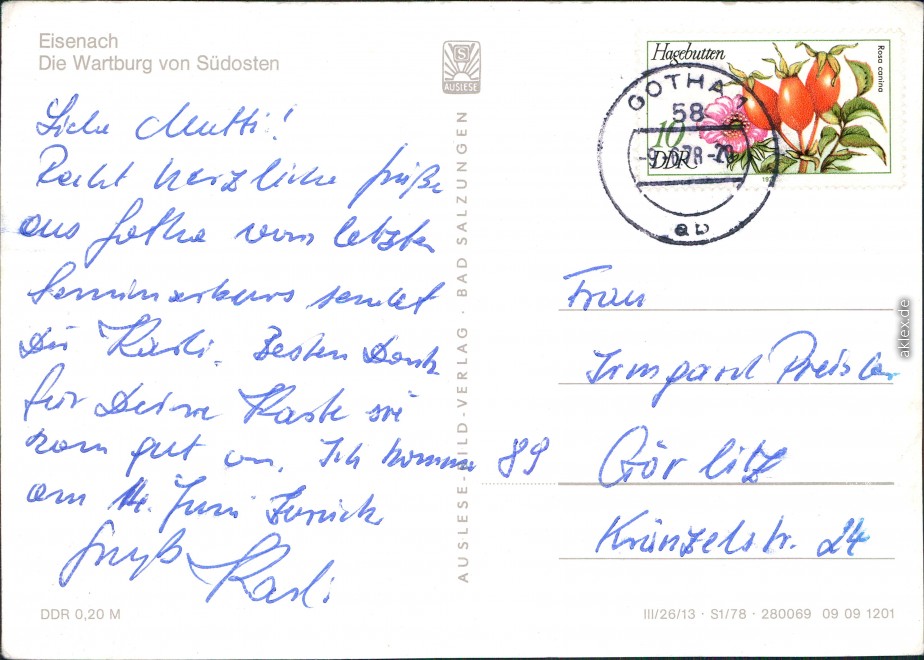 Eisenach
Die Wartburg von Südosten
S
AUSLESE
Hagebutten
Rosa canina
10
DDR
GOTHA 1
58
78-20
ab
Liebe Mutti!
Recht herzliche Grüße
aus Gotha vom letzten
Seminarkurs sendet
Dir Karli. Besten Dank
für Deine Karte sie
kam gut an. Ich komme
am 14. Juni zurück
Gruß Karli
AUSLESE-BILD-VERLAG · BAD SALZUNGEN
Frau
Irmgard Preisler
89 Görlitz
Kränzelstr. 24
DDR 0,20 M
III/26/13 · S1/78 · 280069 09 09 1201
aklex.de